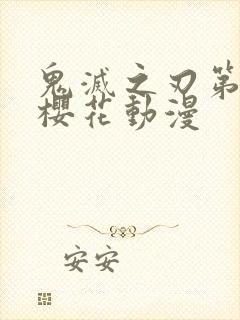 鬼滅之刃第
櫻花動漫
安安